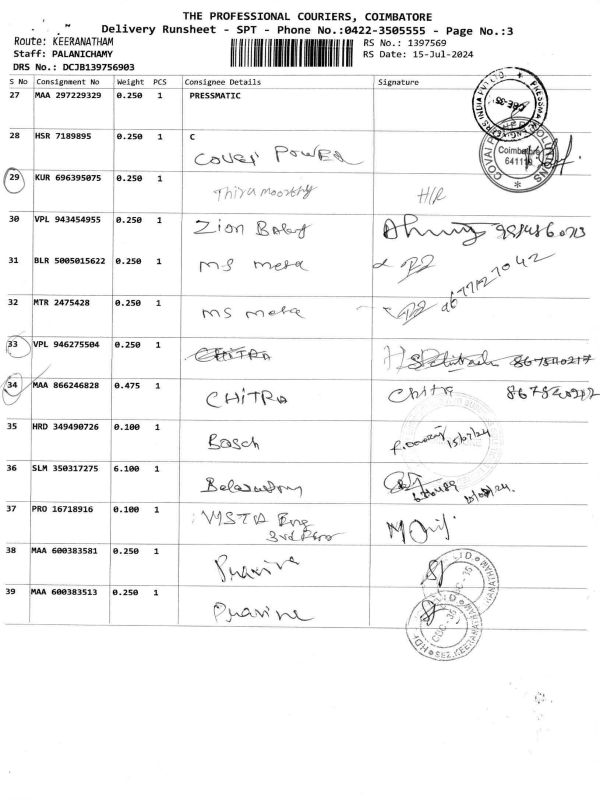 THE PROFESSIONAL COURIERS, COIMBATORE
Delivery Runsheet - SPT - Phone No.:0422-3505555 - Page No.:3
Route: KEERANATHAM
RS No.: 1397569
Staff: PALANICHAMY
RS Date: 15-Jul-2024
DRS No.: DCJB139756903
S No Consignment No Weight PCS Consignee Details Signature
27 MAA 297229329 0.250 1 PRESSMATIC
28 HSR 7189895 0.250 1 C
Cover Power
Coimbatore
641110
29 KUR 696395075 0.250 1
Thiru moorthy H/R
30 VPL 943454955 0.250 1
Zion
31 BLR 5005015622 0.250 1
MS Meta
32 MTR 2475428 0.250 1
MS Meta
33 VPL 946275504 0.250 1
CHITRA 867540217
34 MAA 866246828 0.475 1
CHITRA Chitra
35 HRD 349490726 0.100 1
Bosch 15/07/24
36 SLM 350317275 6.100 1
37 PRO 16718916 0.100 1
VISTA Eng
3rd Floor
38 MAA 600383581 0.250 1
Pravine
39 MAA 600383513 0.250 1
Pravine
SEZ, KEERANATHAM